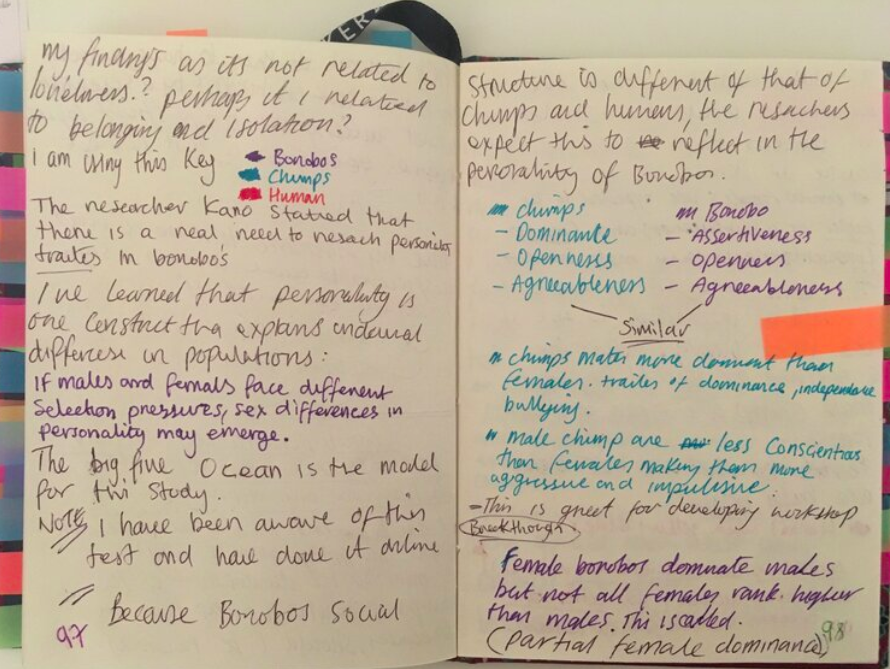 VER
my findings as its not related to
loneliness.? perhaps it i related
to belonging and isolation?
I am using this Key
Bonobos
Chimps
Human
The researcher Kano stated that
there is a real need to
traites in bonobo's
I've learned that personality is
one construct tha explans
differese in populations:
If males and femals face different
Selection pressures, sex differences in
personality may emerge.
The big five Ocean is the model
for this study.
NOTE I have been aware of this
test and have done it online
Because Bonobos Social
97
Structure is different of that of
chimps and humans, the reseachers
expect this to reflect in the
personality of Bonobos.
chimps
- Dominante
- Openness
- Agreeableness
Bonobo
- Assertiveness
- openness
- Agreeableness
Similar
" chimps males more dominant than
females. traites of dominance, independance
bullying.
" male chimp are less Conscientious
than females making them more
aggressive and impulsive.
- This is great for developing workshop
Breakthough
Female bonobos domnate males
but not all females rank higher
than males. This is called.
(partial female dominance)
98